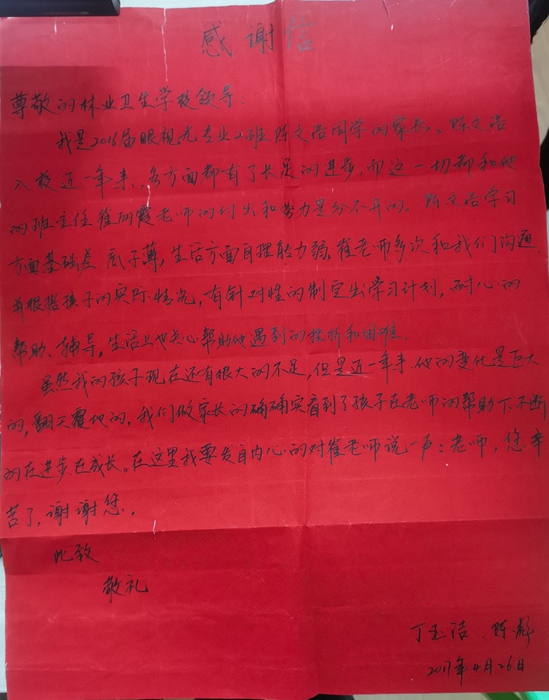 感谢信
尊敬的林业卫生学校领导:
我是2016届眼视光专业2班陈文浩同学的家长。陈文浩
入校近一年来,各方面都有了长足的进步,而这一切都和他
的班主任崔丽霞老师的付出和努力是分不开的。陈文浩学习
方面基础差 底子薄,生活方面自理能力弱,崔老师多次和我们沟通
并根据孩子的实际情况,有针对性的制定出学习计划,耐心的
帮助、辅导,生活上也关心帮助他遇到的挫折和困难。
虽然我的孩子现在还有很大的不足,但是近一年来他的变化是巨大
的,翻天覆地的,我们做家长的确确实看到了孩子在老师的帮助下不断
的在进步在成长。在这里我要发自内心的对崔老师说一声:老师,您辛
苦了,谢谢您。
此致
敬礼
丁玉洁 陈
2017年4月26日